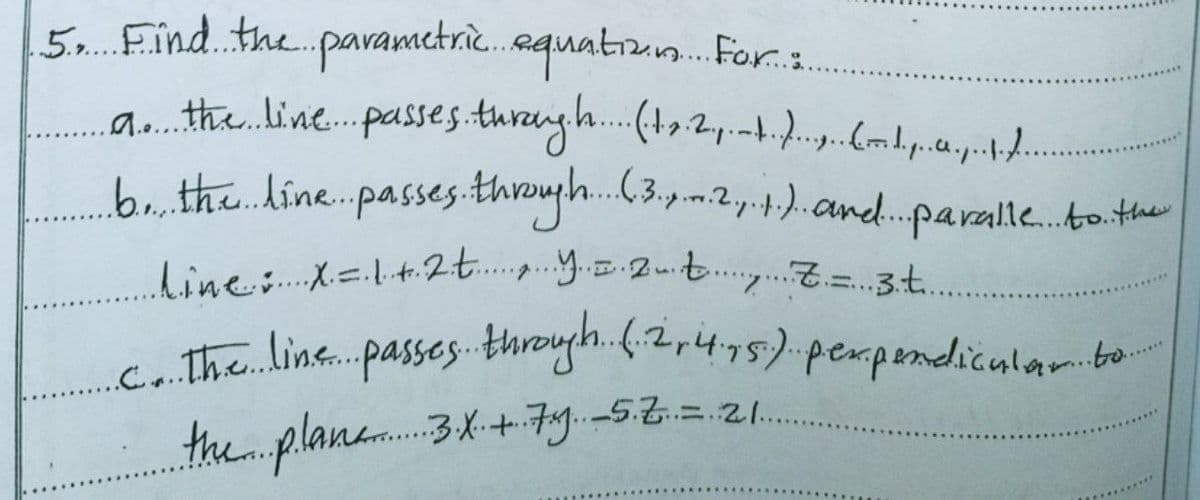 5. Find the parametric equation For:
a. the line passes through (1,2,-1), (-1,a,1)
b. the line passes through (3,-2,1) and paralle to the
Line: x=1+2t, y=2-t, z=3t
c. The line passes through (2,4,5) perpendicular to
the plane 3x+7y-5z=21